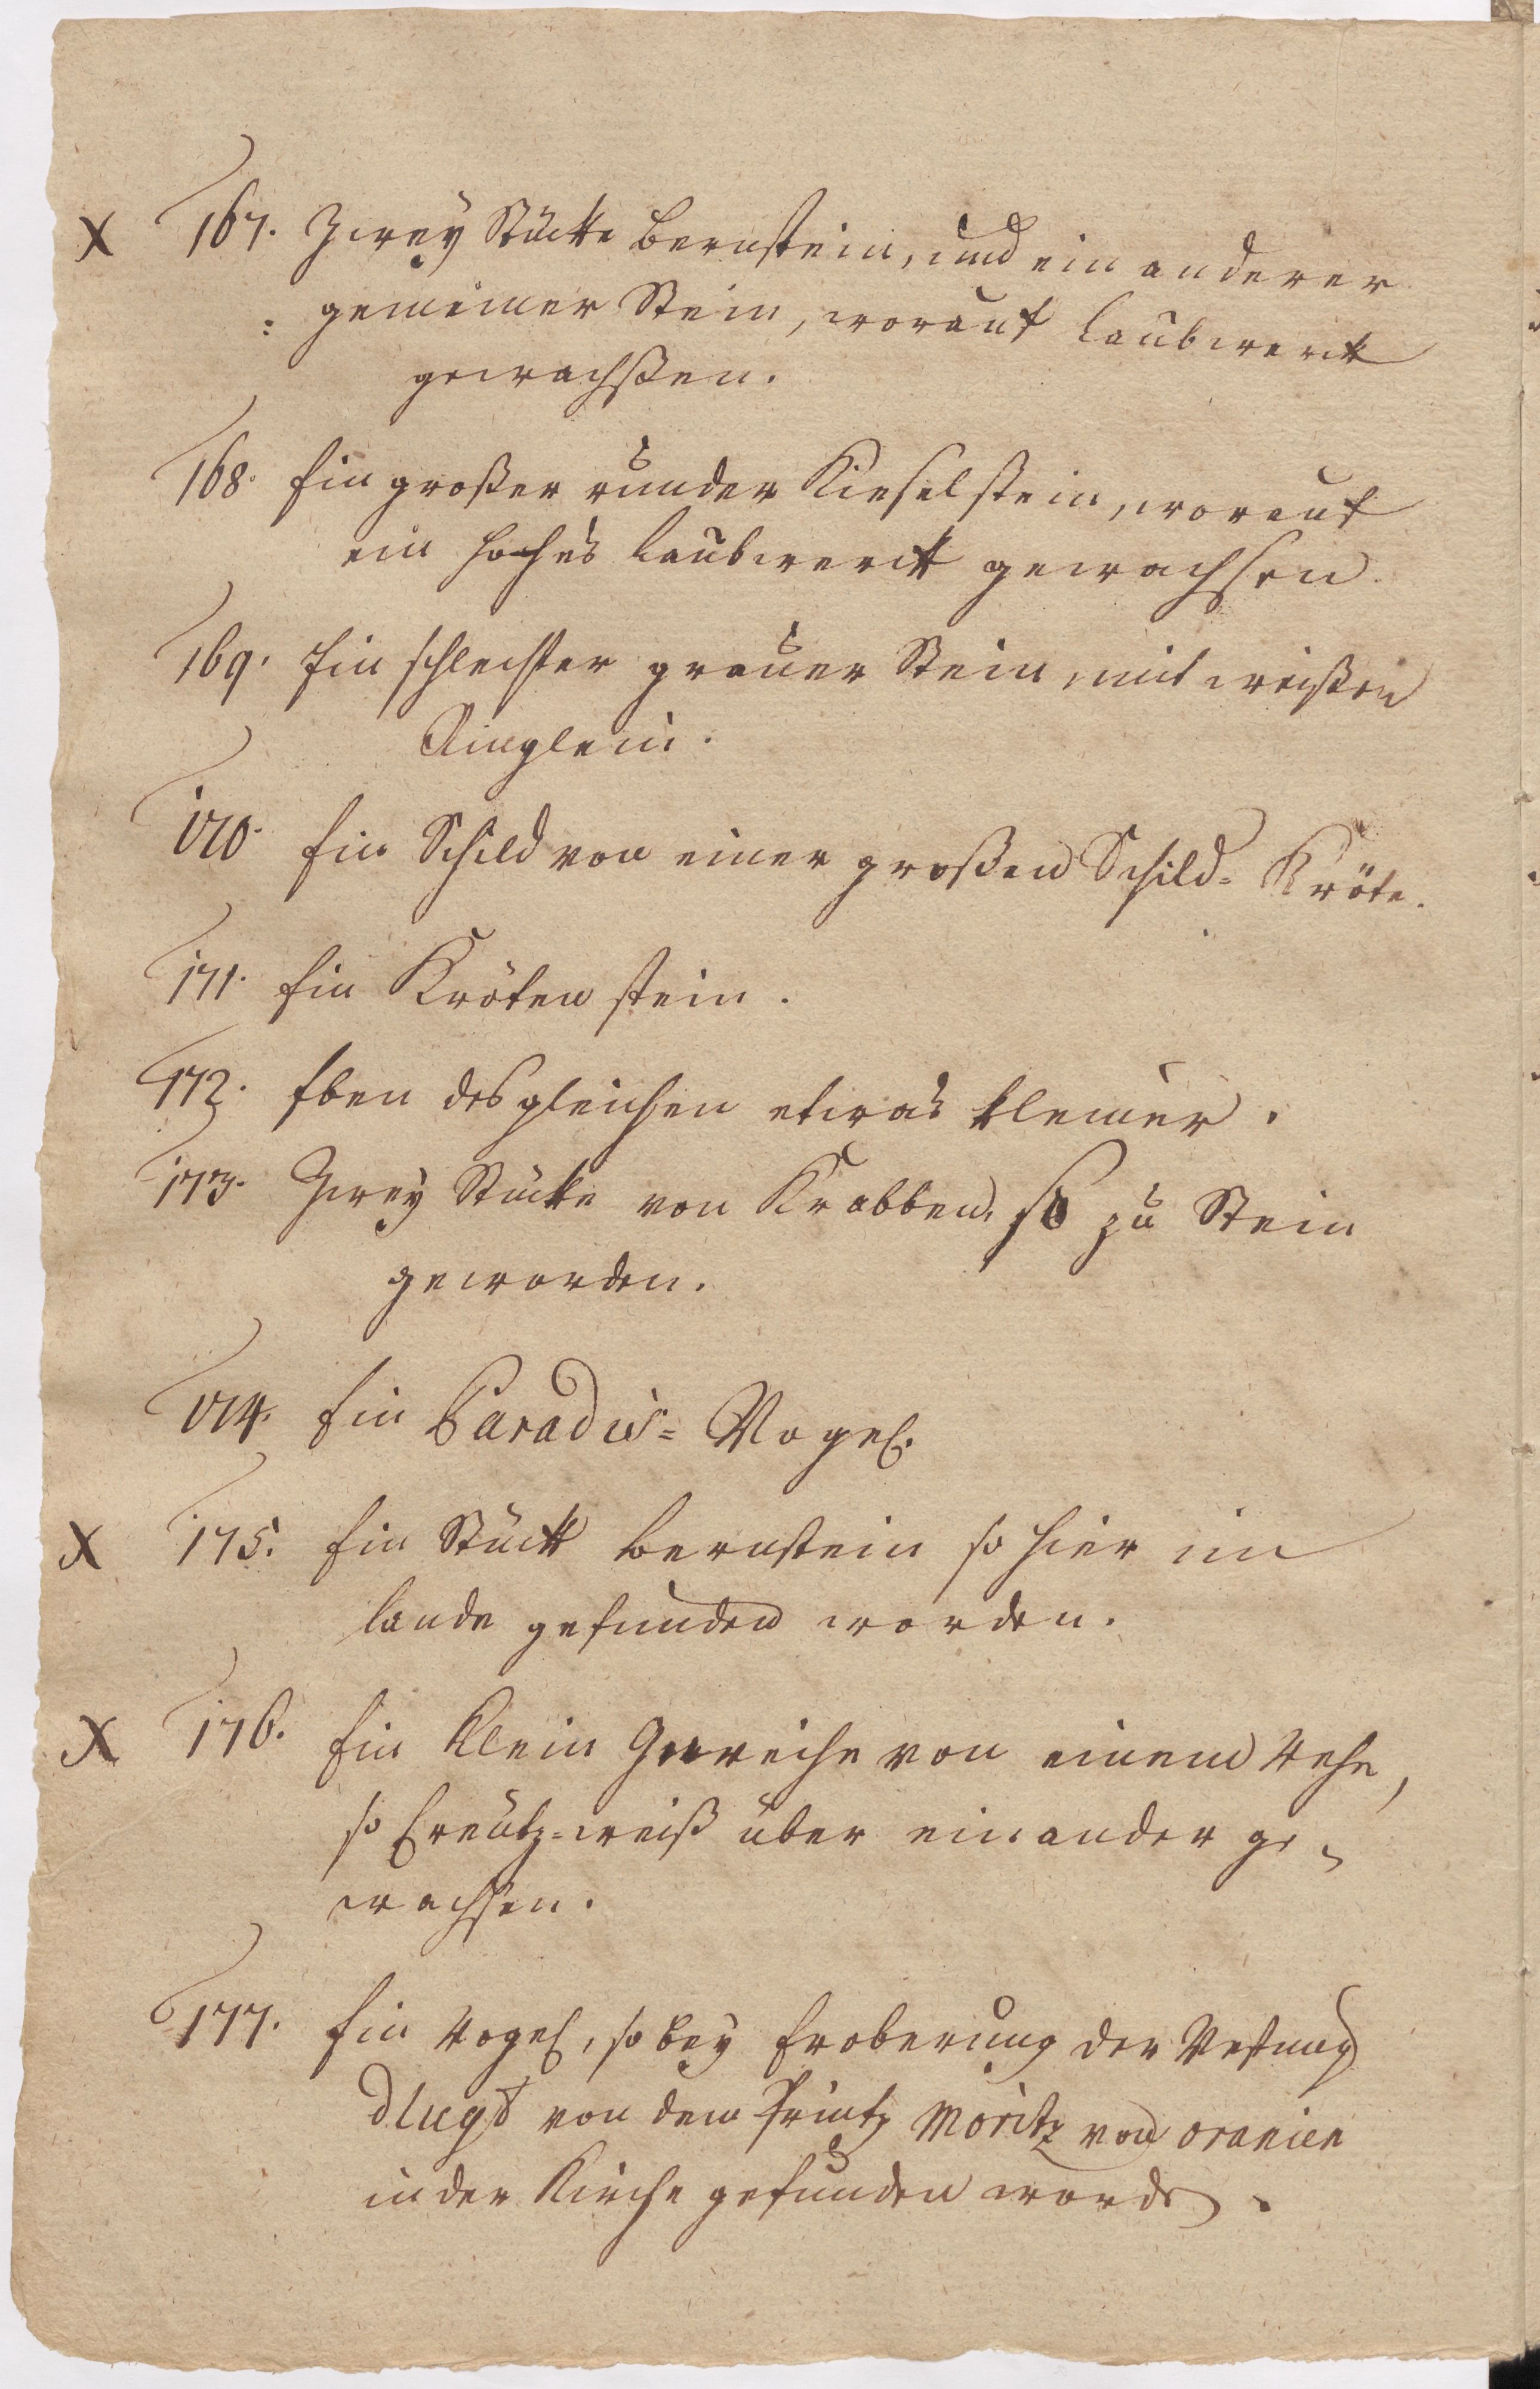 X 167. Zweÿ Stücke Bernstein, und ein anderer
gemeiner Stein, worauf Laubwerck
gewachßen.
168. Ein großer runder Kieselstein, worauf
ein hohes Laubwerck gewachsen.
169. Ein schlechter grauer Stein, mit weißen
Äuglein.
170. Ein Schild von einer großen Schild= Kröte.
171. Ein Kröten stein.
172. Eben desgleichen etwas kleiner.
173. Zweÿ Stücke von Krabben, so zu Stein
geworden.
174. Ein Paradis= Vogel.
X 175. Ein Stück Bernstein so hier im
Lande gefunden worden.
X 176. Ein klein Geweihe von einem Rehe,
so Creutz=weiß über einander ge-
wachsen.
177. Ein Vogel, so beÿ Eroberung der Vestung
von dem Printz Moritz von Oranien
in der Kirche gefunden worden.